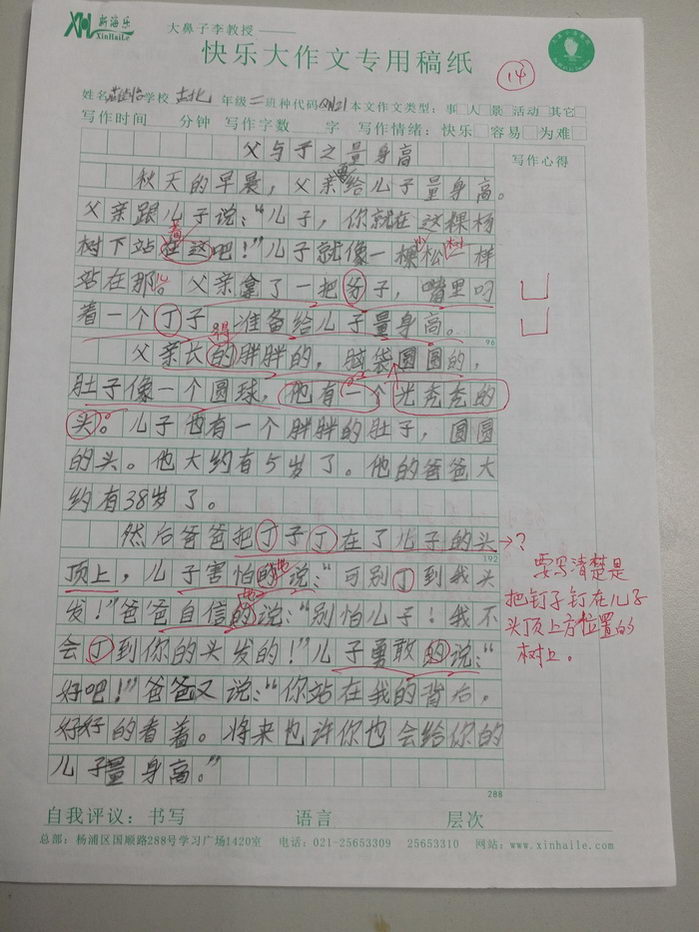 新海乐
XinHaiLe
大鼻子李教授
快乐大作文专用稿纸
14
姓名 学校 古北 年级 二 班种代码 本文作文类型：事 人 景 活动 其它
写作时间 分钟 写作字数 字 写作情绪：快乐 容易 为难
父与子之量身高
写作心得
秋天的早晨，父亲要给儿子量身高。
父亲跟儿子说：“儿子，你就在这棵杨
着
树下站在这吧！”儿子就像一棵松一样
小 树
站在那儿。父亲拿了一把分子，嘴里叼
着一个丁子，准备给儿子量身高。
96
得
父亲长的胖胖的，脑袋圆圆的，
肚子像一个圆球，他有一个光秃秃的
头。儿子也有一个胖胖的肚子，圆圆
的头。他大约有5岁了。他的爸爸大
约有38岁了。
然后爸爸把丁子丁在了儿子的头
？
192
顶上，儿子害怕的说：“可别丁到我头
地
发！”爸爸自信的说：“别怕儿子！我不
地
会丁到你的头发的！”儿子勇敢的说：“
好吧！”爸爸又说：“你站在我的背后，
好好的看着。将来也许你也会给你的
儿子量身高。”
288
要写清楚是
把钉子钉在儿子
头顶上方位置的
树上。
自我评议：书写 语言 层次
总部：杨浦区国顺路288号学习广场1420室 电话：021-25653309 25653310 网站：www.xinhaile.com